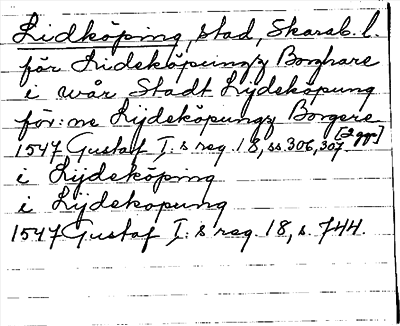 Lidköping, stad, Skarab. l.
för Lideköpungz Borghare
i wår Stadt Lijdeköpung
för:ne Lijdeköpungz Borgere
[2 ggr]
1547 Gustaf I:s reg. 18, ss. 306, 307.
i Lijdeköping
i Lijdekopung
1547 Gustaf I:s reg. 18, s. 744.